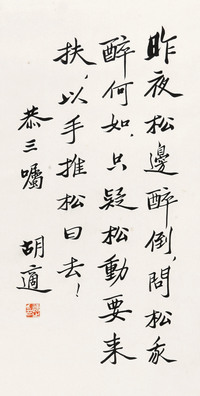 昨夜松邊醉倒，問松我
醉何如．只疑松動要来
扶，以手推松曰去！
恭三囑
胡適